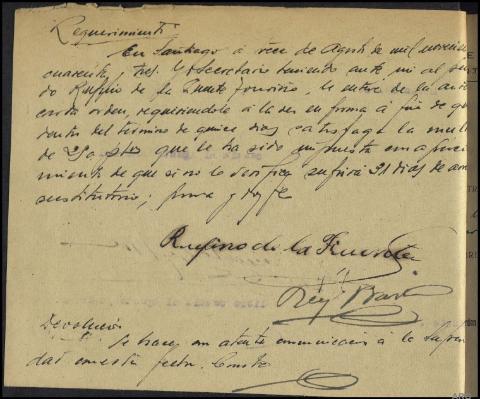 Requerimiento
En Santiago a trece de Agosto de mil novecien
cuarenta y tres. el Secretario teniendo ante mi al
do Rufino de la Fuente le entere de la
carta orden, requiriendole a la vez en forma a fin de q
dentro del termino de quince dias satisfaga la mul
de 250 ptas que le ha sido impuesta con aperci
miento de que si no lo verifica sufrirá 21 dias de arr
sustitutorio; firma y doy fe
Rufino de la Fuente
Devolución
Se hace con atenta comunicación a la Superio
dad en esta fecha. Consta